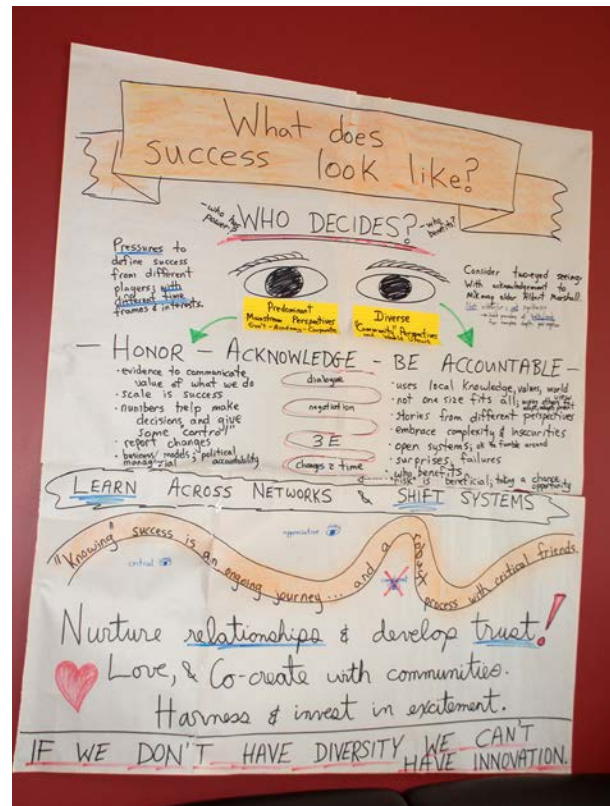 What does
success look like?
- who has power?
WHO DECIDES?
- who benefits?
Pressures to
define success
from different
players; with
different time
frames & interests.
Consider two-eyed seeing
With acknowledgement to
Mikmaq elder Albert Marshall.
Predominant
Mainstream Perspectives
Gov't - Academy - Corporate
Diverse
"Community" Perspectives
- HONOR - ACKNOWLEDGE - BE ACCOUNTABLE -
· evidence to communicate
value of what we do
· scale is success
· numbers help make
decisions, and give
some "control"
· report changes
· business models; political
managerial accountability
dialogue
negotiation
3E
changes z time
· uses local knowledge, values, world
view
· not one size fits all;
· stories from different perspectives
· embrace complexity & insecurities
· open systems; ok to fumble around
· surprises, failures
· who benefits,
· "risk" is beneficial; taking a chance,
opportunity
LEARN ACROSS NETWORKS & SHIFT SYSTEMS
"Knowing" success is an ongoing journey... and a process with critical friends.
appreciative
critical
Nurture relationships & develop trust!
Love, & Co-create with communities.
Harness & invest in excitement.
IF WE DON'T HAVE DIVERSITY WE CAN'T
HAVE INNOVATION.